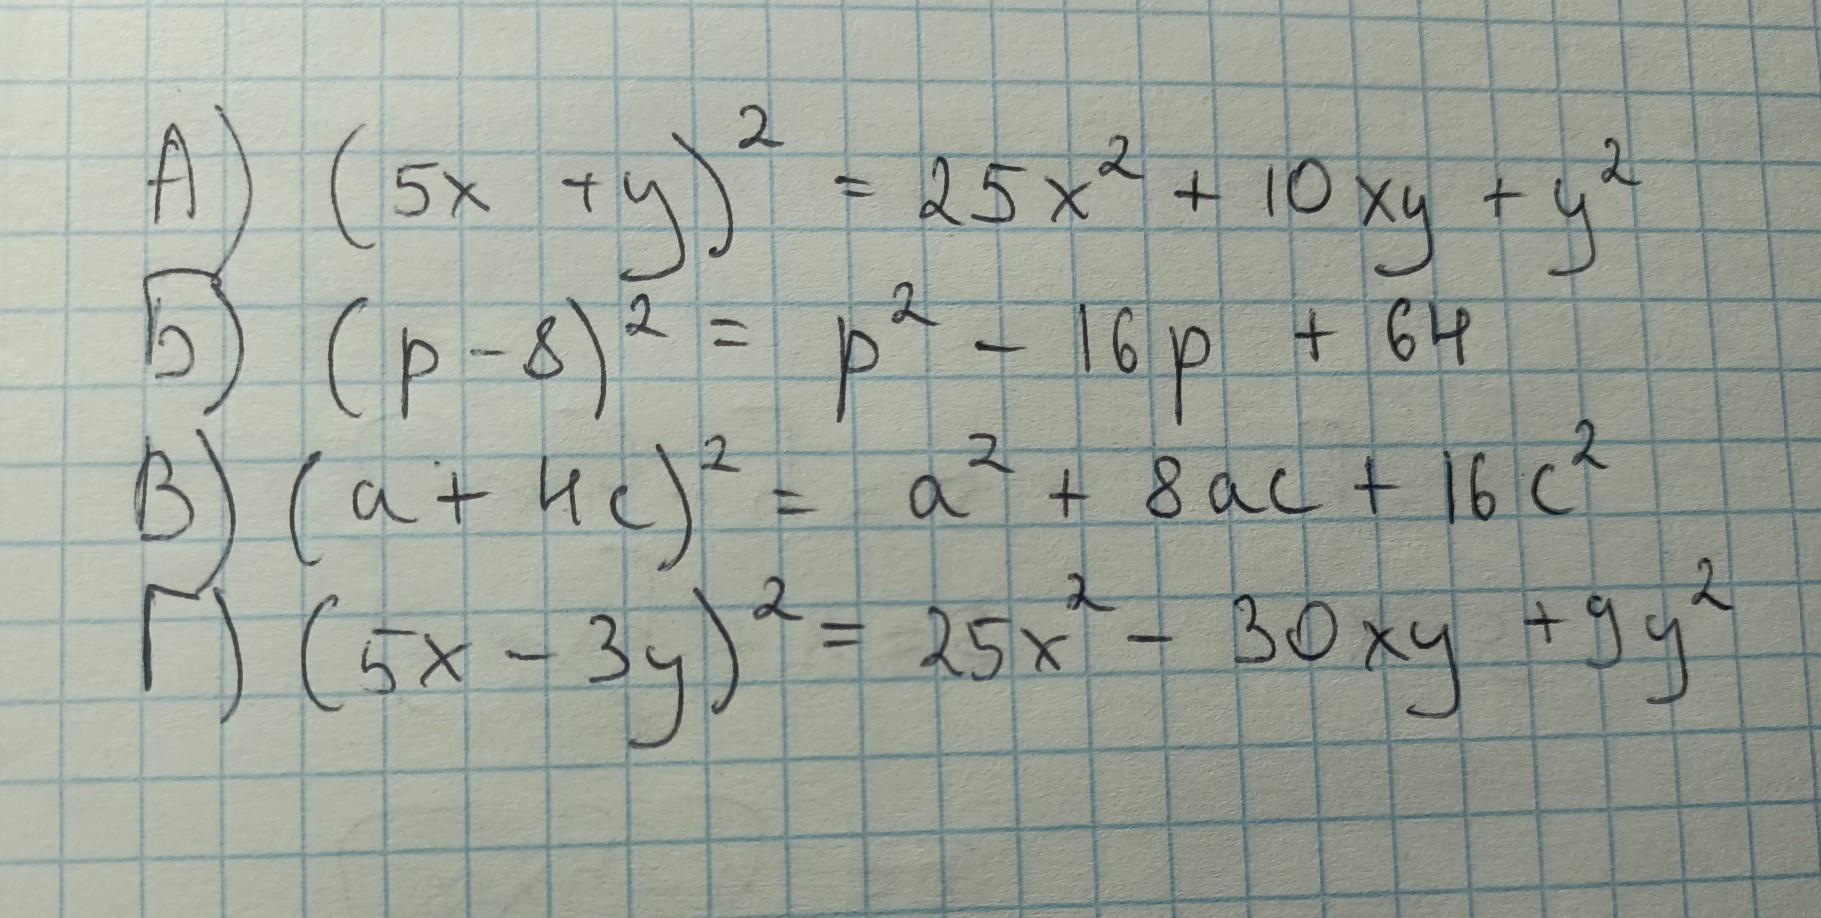 А) (5x + y)² = 25x² + 10xy + y²
Б) (p - 8)² = p² - 16p + 64
В) (a + 4c)² = a² + 8ac + 16c²
Г) (5x - 3y)² = 25x² - 30xy + 9y²